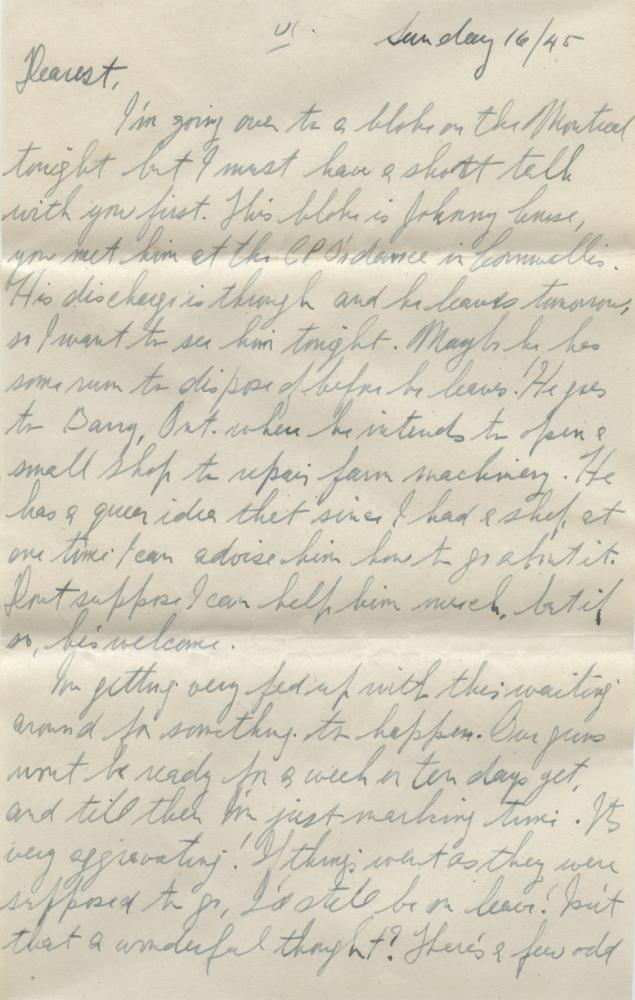 Sunday 16/45
Dearest,
I'm going over to a bloke on the Montreal
tonight but I must have a short talk
with you first. This bloke is Johnny
you met him at the CPO's dance in Cornwallis.
His discharge is through and he leaves tomorrow,
so I want to see him tonight. Maybe he has
some rum to dispose of before he leaves! He goes
to Barry, Ont. where he intends to open a
small shop to repair farm machinery. He
has a queer idea that since I had a shop at
one time I can advise him how to go about it.
Dont suppose I can help him much, but if
so, he's welcome.
I'm getting very fed up with this waiting
around for something to happen. Our guns
wont be ready for a week or ten days yet,
and till then I'm just marking time. It's
very aggravating! If things went as they were
supposed to go, I'd still be on leave! Isn't
that a wonderful thought? There's a few odd